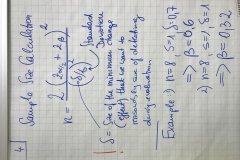 4
Sample Size Calculation
n = 2 (zα/2 + zβ)² / (δ/σ)²
Standard deviation
δ = Size of the minimum change
(effect) that we want to
sure of detecting
during evaluation.
Example: 1) n=8, s=1 δ=0,7
=> β=0,6
2) n=8, s=1, δ=1
=> β=0.32